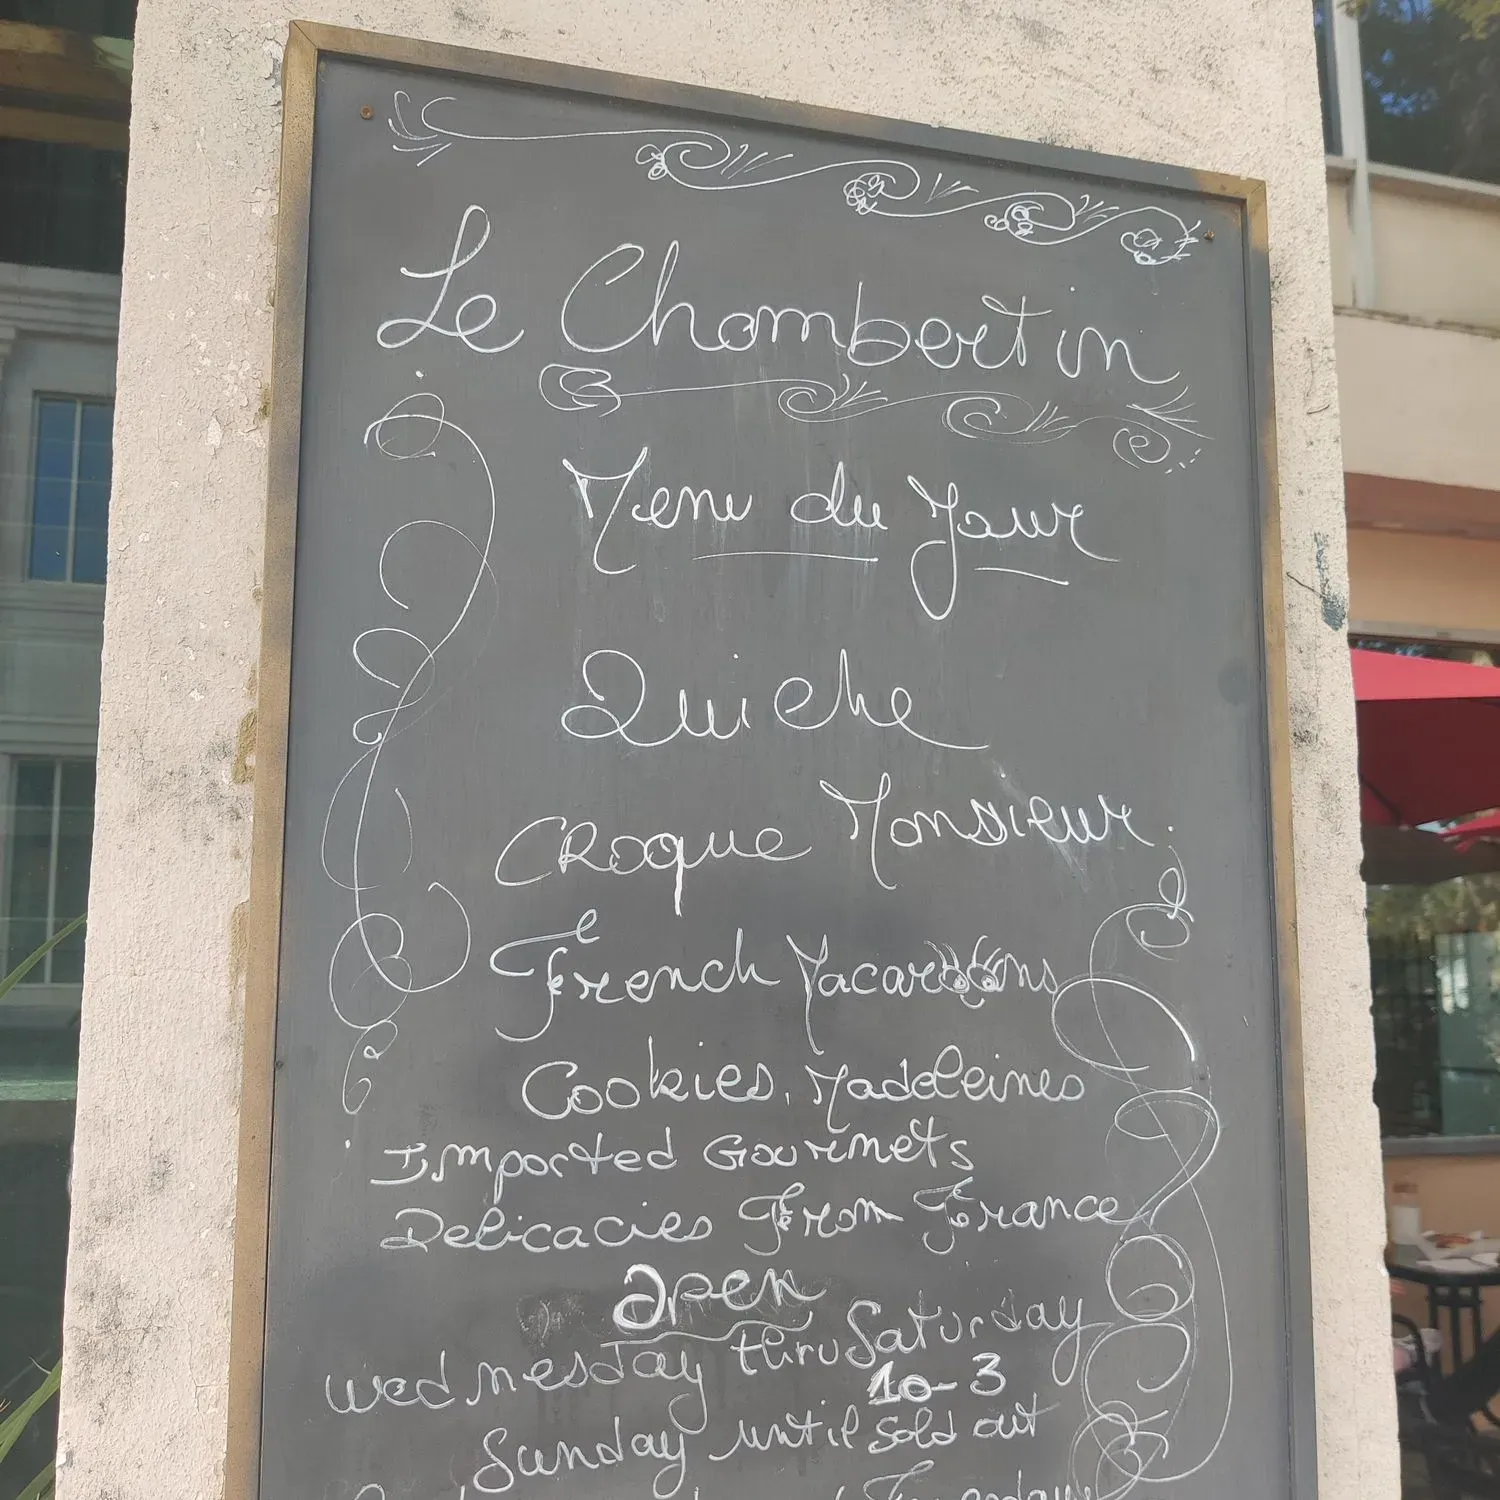 Le Chambertin
Menu du Jour
Quiche
Croque Monsieur
French Macaroons
Cookies, Madeleines
Imported Gourmets
Delicacies From France
Open
Wednesday thru Saturday
10-3
Sunday until sold out